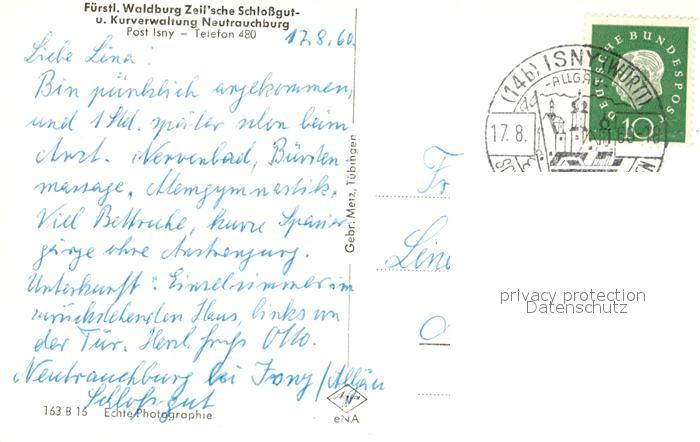 Fürstl. Waldburg Zeil'sche Schloßgut-
u. Kurverwaltung Neutrauchburg
Post Isny – Telefon 480
17.8.60.
Liebe Lina!
Bin pünktlich angekommen,
und 1 Std. später schon beim
Arzt. Nervenbad, Bürsten-
massage, Atemgymnastik.
Viel Bettruhe, kurze Spazier-
gänge ohne Anstrengung.
Unterkunft: Einzelzimmer im
zurückstehenden Haus, links von
der Tür. Herzl. Otto.
Neutrauchburg bei Isny/Allgäu
Schloßgut
163 B 15 Echte Photographie
Gebr. Metz, Tübingen
eNA
Fr
Lin
DEUTSCHE BUNDESPOST
10
(14b) ISNY (WÜRTT
-ALLGÄ
17. 8.
privacy protection
Datenschutz